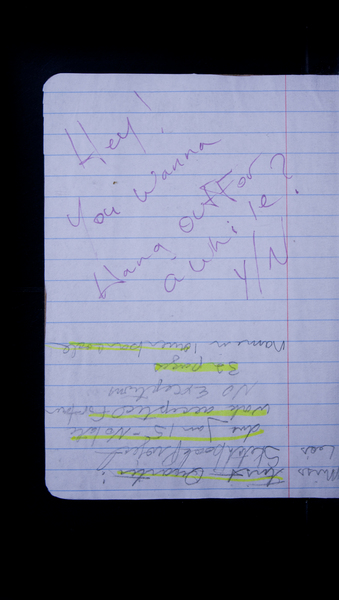 Hey!
You wanna
Hang out For
a while?
Y/N
Miss First Quarter:
Lees Sketchbook Project
due Jan 15 - No late
work accepted
No Exceptions
32 pages
Name on